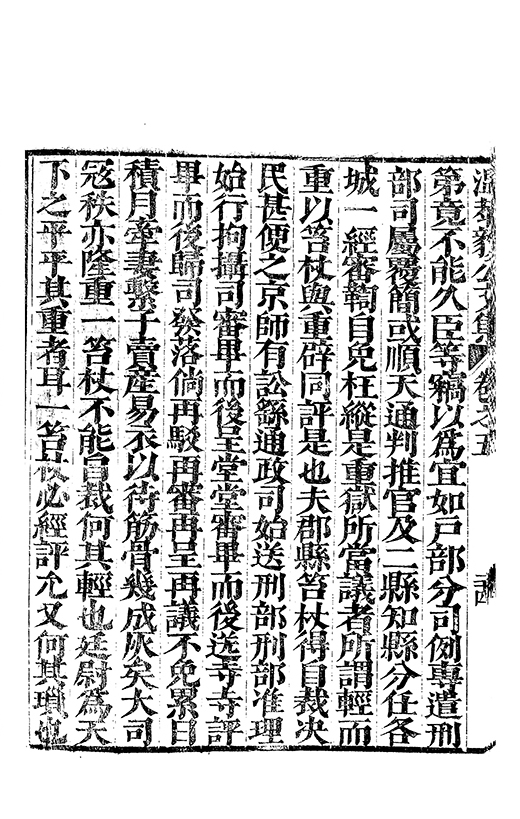 溫恭毅公文集 卷之五
第竟不能久臣等竊以為宜如戶部分司例專遣刑
部司屬覆簡或順天通判推官及二縣知縣分任各
城一經審鞫自免枉縱是重獄所當議者所謂輕而
重以笞杖與重辟同評是也夫郡縣笞杖得自裁决
民甚便之京師有訟繇通政司始送刑部刑部准理
始行拘攝司審畢而後呈堂堂審畢而後送寺寺評
畢而後歸司發落倘再駁再審再呈再議不免累日
積月牽妻繫子賣産易衣以待筋骨幾成灰矣大司
寇秩亦隆重一笞杖不能自裁何其輕也廷尉為天
下之平平其重者耳一笞杖必經評允又何其瑣也